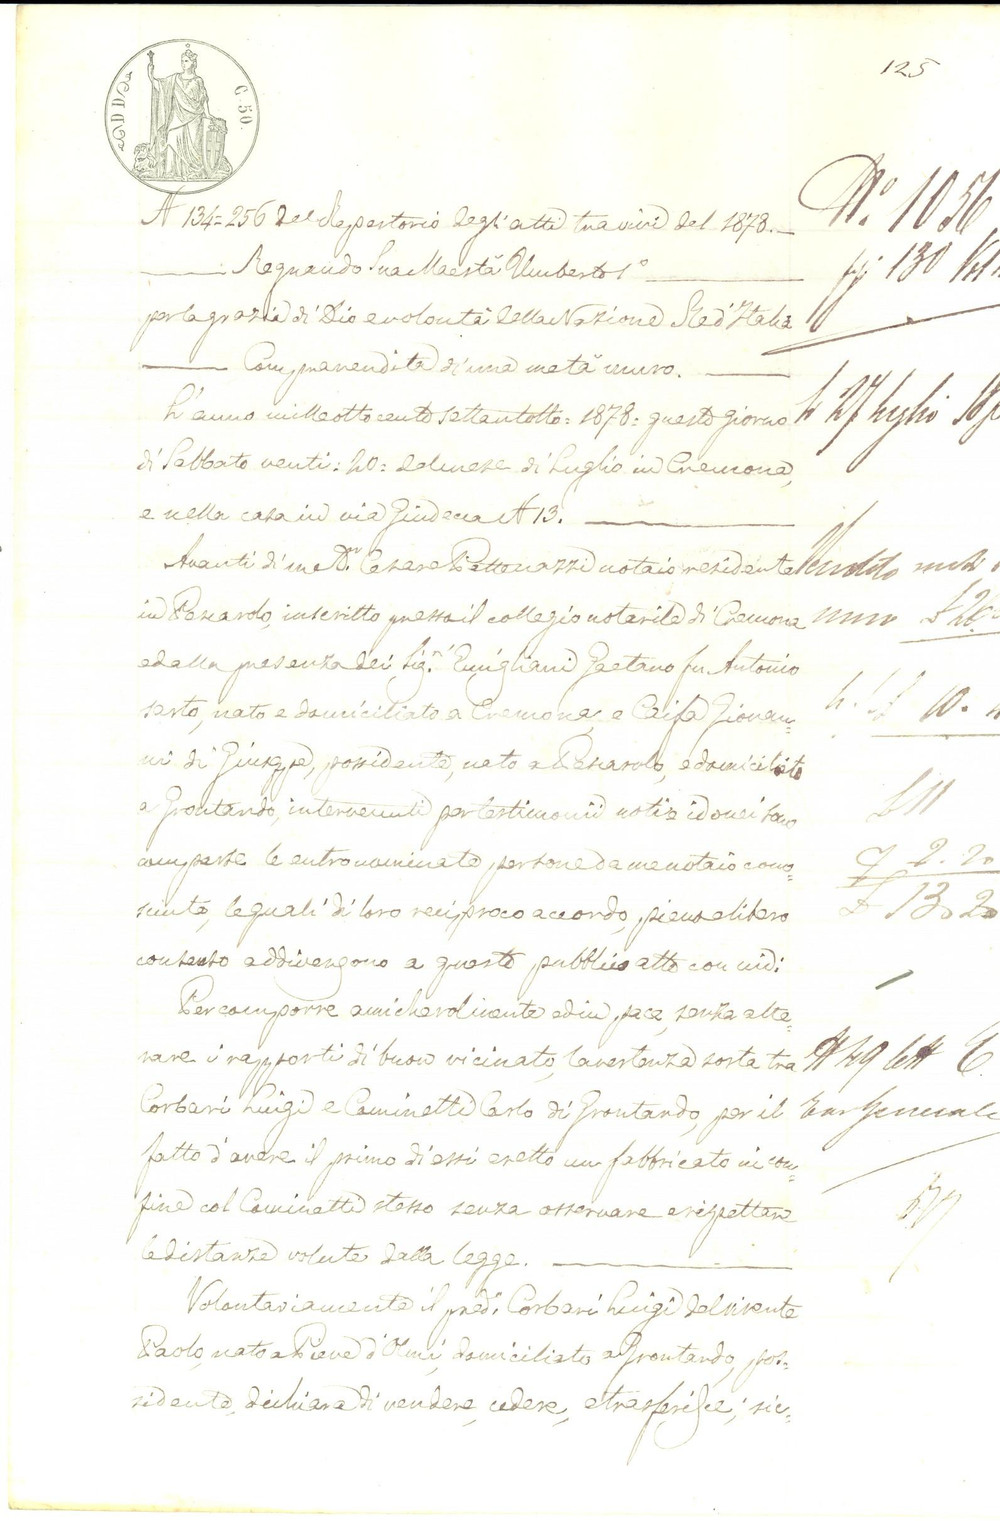 125
C. 50.
N 134=256 del Repertorio degli atti tra vivi del 1878.
Regnando Sua Maestà Umberto 1°
per la grazia di Dio e volontà della Nazione Re d'Italia
Compravendita di una metà muro.
L'anno milleottocento settantotto = 1878 = questo giorno
di Sabbato venti = 20 = del mese di Luglio in Cremona,
e nella casa in via Giudecca N 13.
Avanti di me Dr. Cesare notaio residente
in Pescarolo, inscritto presso il collegio notarile di Cremona
ed alla presenza dei Sig.ri Gaetano fu Antonio
sarto, nato e domiciliato a Cremona, e Caifa Giovan=
ni di Giuseppe, possidente, nato a Pescarolo, e domiciliato
a Grontardo, intervenuti per testimonii noti e idonei sono
comparse le entro nominate persone da me notaio cono=
sciute, le quali di loro reciproco accordo, pieno e libero
consenso addivengono a questo pubblico atto con cui:
Per comporre amichevolmente ed in pace, senza alte=
rare i rapporti di buon vicinato, la vertenza sorta tra
Corbari Luigi e Caminetti Carlo di Grontardo, per il
fatto d'avere il primo di essi eretto un fabbricato in con=
fine col Caminetti stesso senza osservare e rispettare
le distanze volute dalla legge.
Volontariamente il pred. Corbari Luigi del vivente
Paolo, nato a Pieve d'Olmi, domiciliato a Grontardo, pos=
sidente, dichiara di vendere, cedere, e trasferisce, sic=
N.° 1056
130
li 27 luglio
Vendita metà
muro
10.
£ 11
2. 20
£ 13. 20
N 49 lett C.
Tar Generale